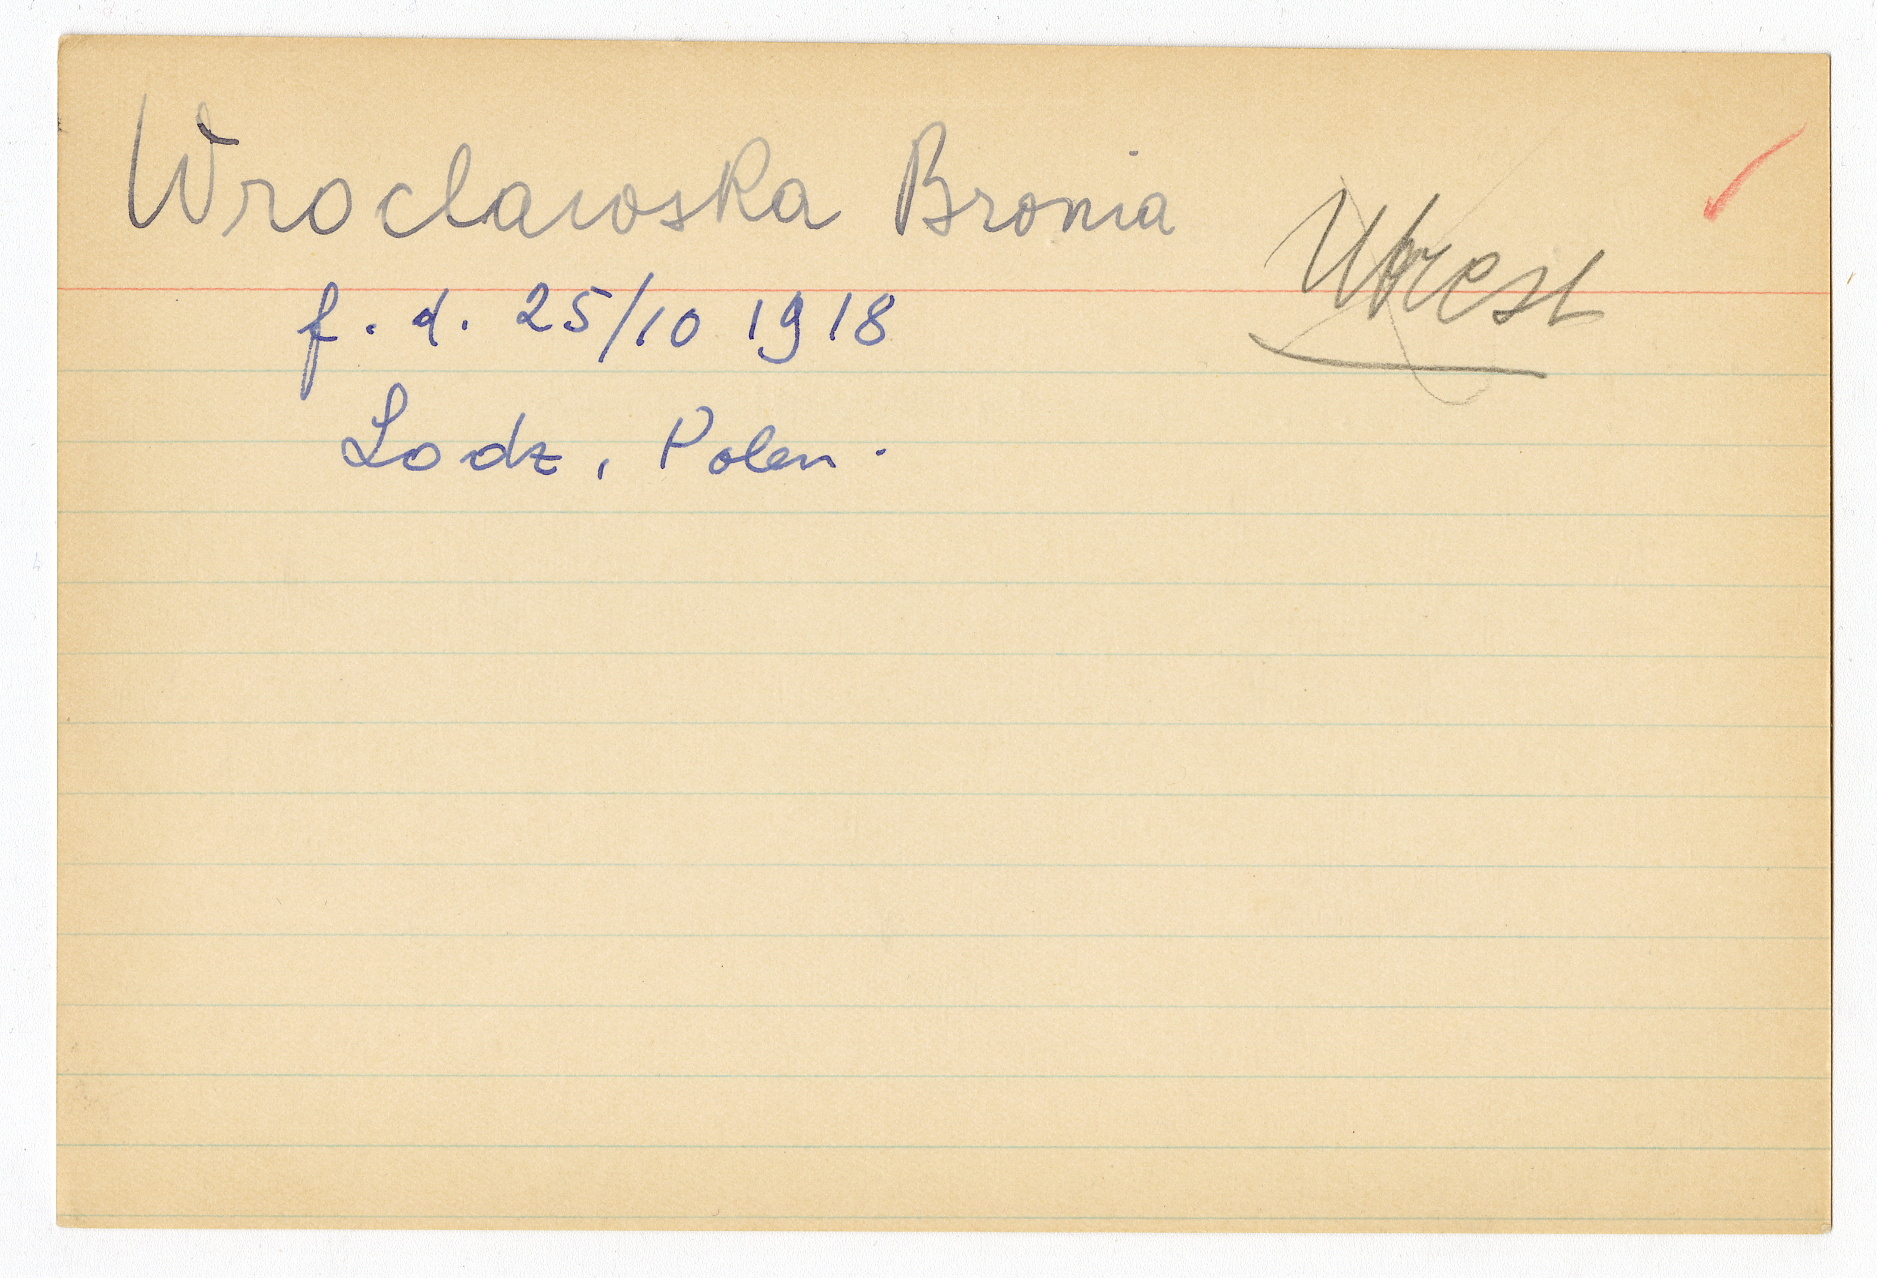 Wroclawska Bronia
f. d. 25/10 1918
Lodz, Polen.